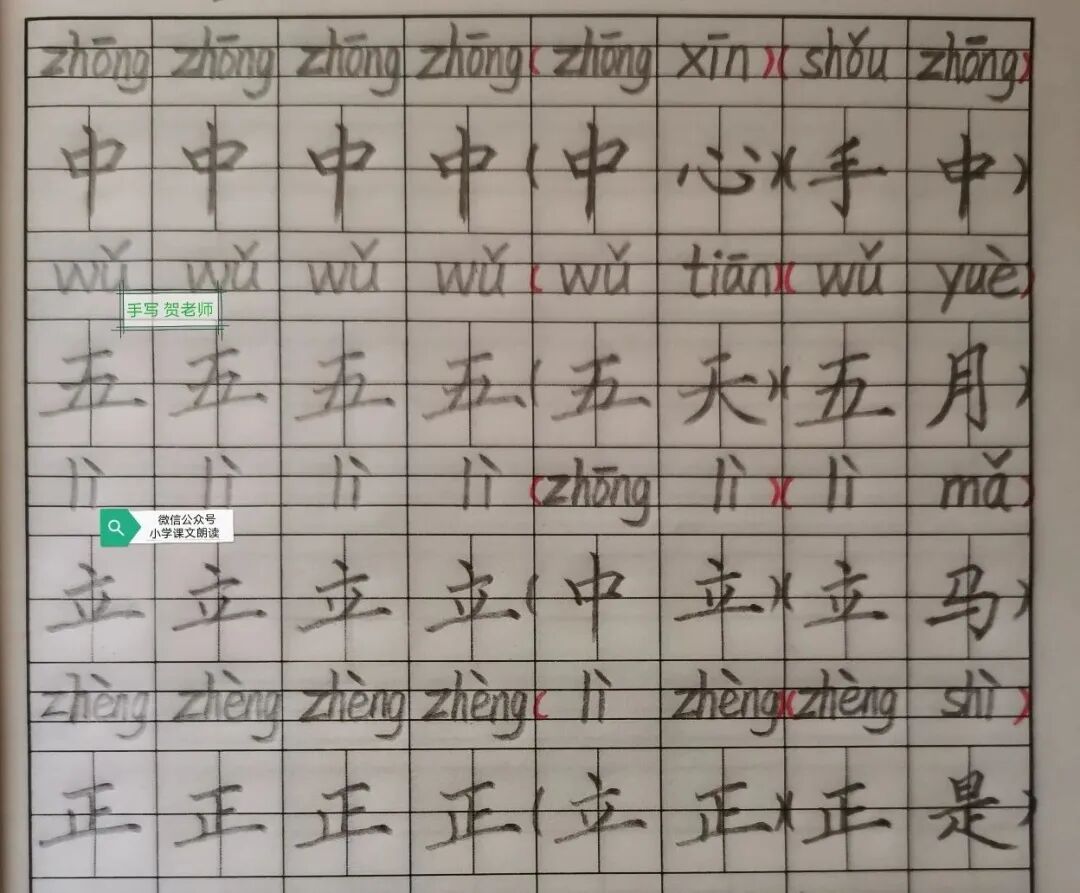 zhōng zhōng zhōng zhōng (zhōng xīn)(shǒu zhōng)
中 中 中 中 (中 心)(手 中)
wǔ wǔ wǔ wǔ (wǔ tiān)(wǔ yuè)
手写 贺老师
五 五 五 五 (五 天)(五 月)
lì lì lì lì (zhōng lì)(lì mǎ)
微信公众号
小学课文朗读
立 立 立 立 (中 立)(立 马)
zhèng zhèng zhèng zhèng (lì zhèng)(zhèng shì)
正 正 正 正 (立 正)(正 是)